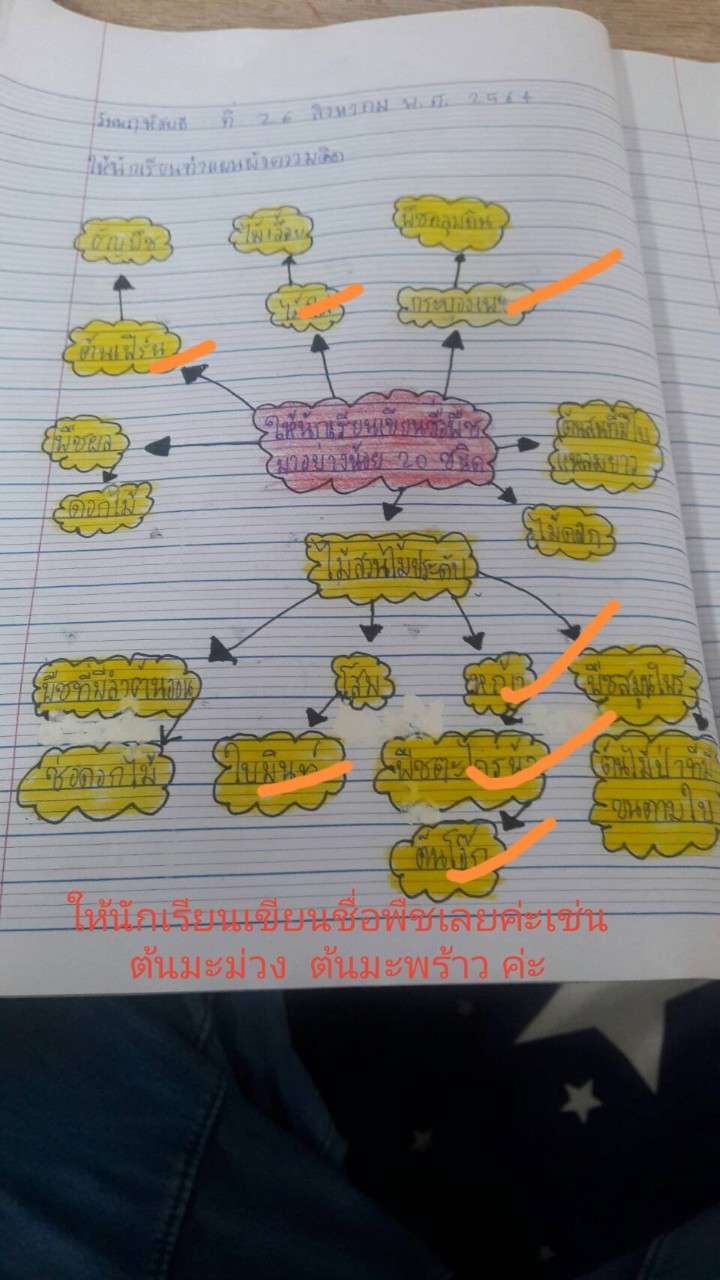 วันพฤหัสบดี ที่ 26 สิงหาคม พ.ศ. 2564
ให้นักเรียนทำแผนผังความคิด
ธัญพืช
ไม้เลื้อย
พืชคลุมดิน
กระบองเพชร
ต้นเฟิร์น
ให้นักเรียนเขียนชื่อพืช
มาอย่างน้อย 20 ชนิด
พืชผล
ดอกไม้
ต้นสนที่มีใบ
แหลมยาว
ไม้ดอก
ไม้สวนไม้ประดับ
พืชที่มีลำต้นอ่อน
โสม
หญ้า
พืชสมุนไพร
ช่อดอกไม้
ใบมินท์
พืชตะไคร้น้ำ
ต้นไม้ป่าที่มี
ขนตามใบ
ต้นโอ๊ก
ให้นักเรียนเขียนชื่อพืชเลยค่ะเช่น
ต้นมะม่วง ต้นมะพร้าว ค่ะ